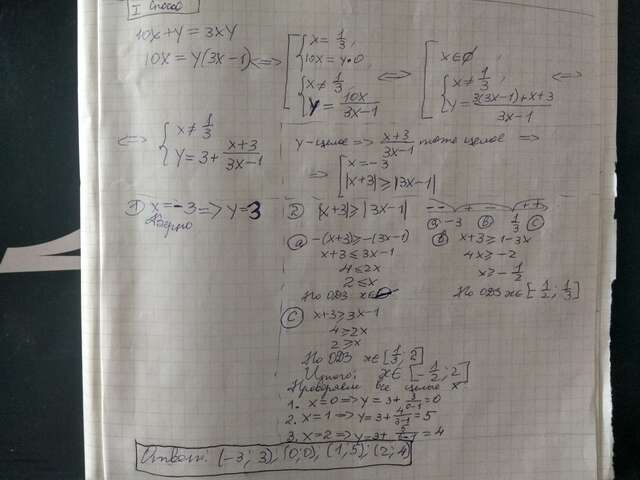 I Способ
10x+y = 3xy
10x = y(3x-1) <=> [ { x = 1/3, 10x = y·0, { x ≠ 1/3, y = 10x/(3x-1) <=> [ x∈∅, { x ≠ 1/3, y = (3(3x-1)+x+3)/(3x-1) <=>
<=> { x ≠ 1/3, y = 3 + (x+3)/(3x-1)
y-целое => (x+3)/(3x-1) тоже целое =>
=> [ x = -3, |x+3| ≥ |3x-1|
1) x = -3 => y = 3
Верно
2) |x+3| ≥ |3x-1|
-- + - ++
a -3 b 1/3 c
a) -(x+3) ≥ -(3x-1)
x+3 ≤ 3x-1
4 ≤ 2x
2 ≤ x
По ОДЗ x∈∅
b) x+3 ≥ 1-3x
4x ≥ -2
x ≥ -1/2
По ОДЗ x∈[-1/2; 1/3]
c) x+3 ≥ 3x-1
4 ≥ 2x
2 ≥ x
По ОДЗ x∈[1/3; 2]
Итого: x∈[-1/2; 2]
Проверяем все целые x
1. x=0 => y = 3 + 3/(0-1) = 0
2. x=1 => y = 3 + 4/(3-1) = 5
3. x=2 => y = 3 + 5/(6-1) = 4
Ответ: (-3; 3); (0;0), (1;5); (2;4)